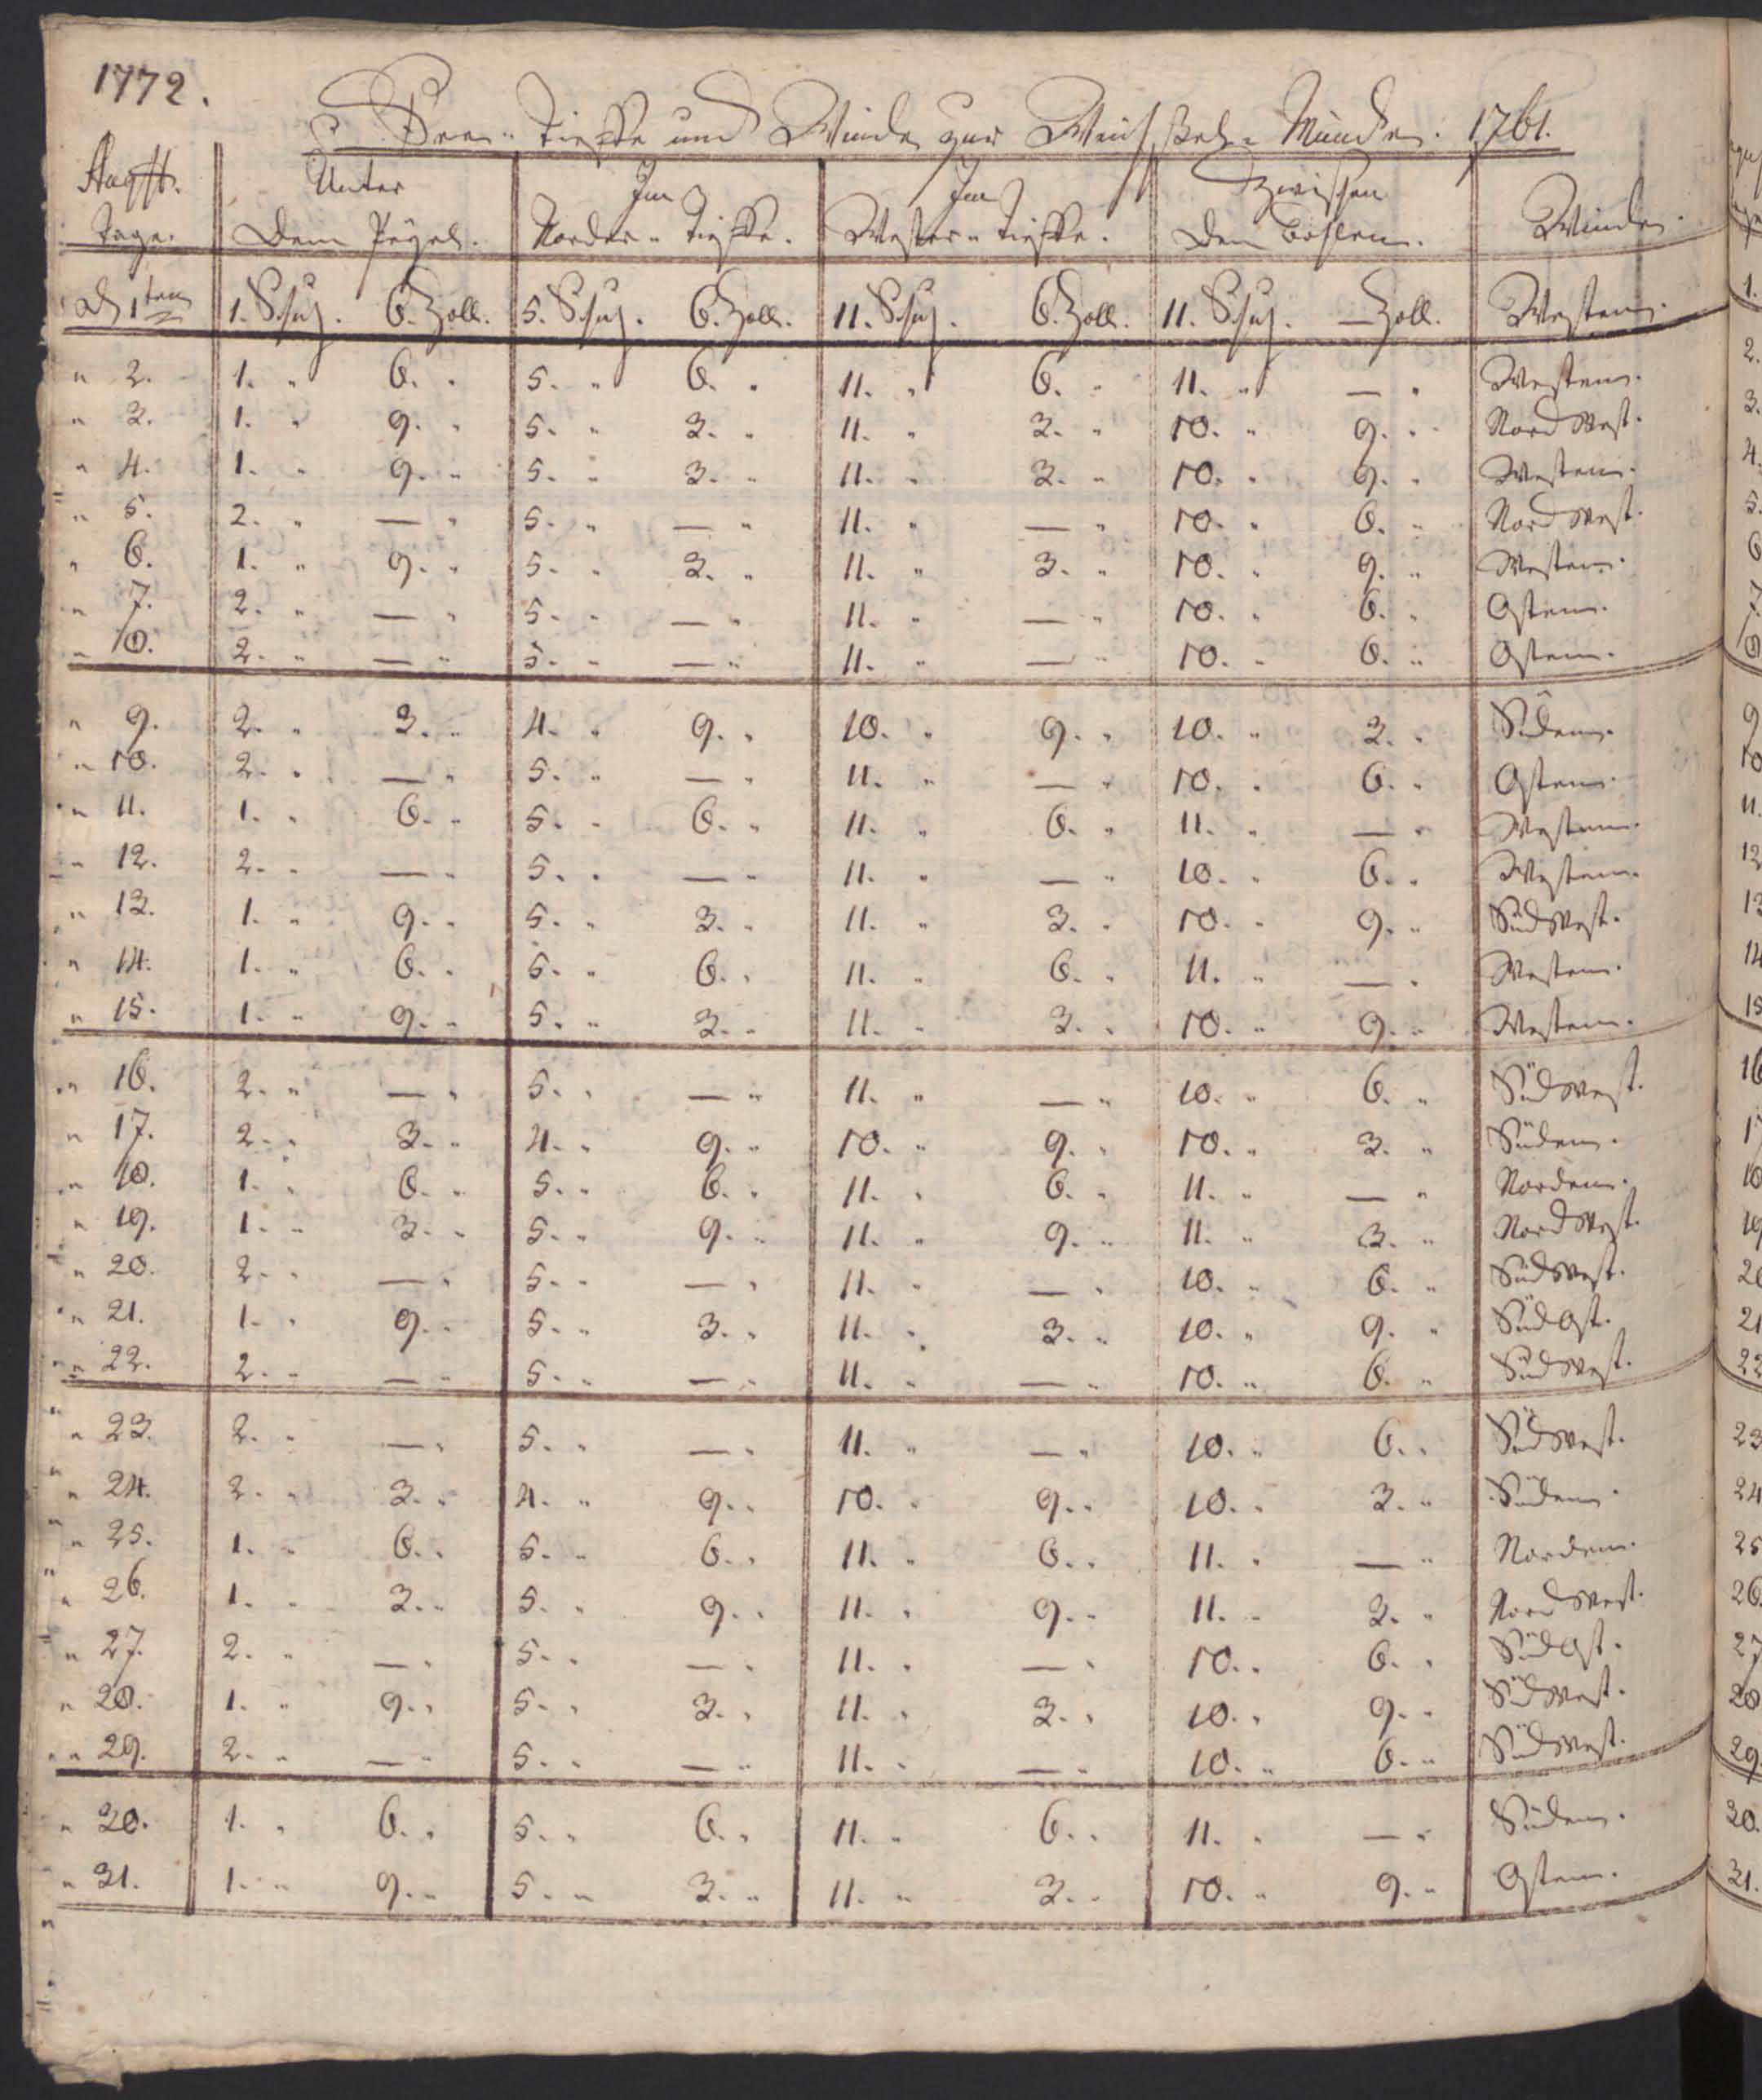 1772.
See- Tieffe und Winde zur Weichsel- Münde. 1761.
Augst. Unter Im Im Zwischen
Tage. Dem Pegel. Norder- Tieffe. Wester- Tieffe. Den Bohlen. Winde.
D 1ten 1. Schuh. 6. Zoll. 5. Schuh. 6. Zoll. 11. Schuh. 6. Zoll. 11. Schuh. — Zoll. Westen.
" 2. 1. " 6. " 5. " 6. " 11. " 6. " 11. " — " Westen.
" 3. 1. " 9. " 5. " 3. " 11. " 3. " 10. " 9. " Nord West.
" 4. 1. " 9. " 5. " 3. " 11. " 3. " 10. " 9. " Westen.
" 5. 2. " — " 5. " — " 11. " — " 10. " 6. " Nord West.
" 6. 1. " 9. " 5. " 3. " 11. " 3. " 10. " 9. " Westen.
" 7. 2. " — " 5. " — " 11. " — " 10. " 6. " Osten.
" 8. 2. " — " 5. " — " 11. " — " 10. " 6. " Osten.
" 9. 2. " 3. " 4. " 9. " 10. " 9. " 10. " 3. " Süden.
" 10. 2. " — " 5. " — " 11. " — " 10. " 6. " Osten.
" 11. 1. " 6. " 5. " 6. " 11. " 6. " 11. " — " Westen.
" 12. 2. " — " 5. " — " 11. " — " 10. " 6. " Westen.
" 13. 1. " 9. " 5. " 3. " 11. " 3. " 10. " 9. " Süd West.
" 14. 1. " 6. " 5. " 6. " 11. " 6. " 11. " — " Westen.
" 15. 1. " 9. " 5. " 3. " 11. " 3. " 10. " 9. " Westen.
" 16. 2. " — " 5. " — " 11. " — " 10. " 6. " Süd West.
" 17. 2. " 3. " 4. " 9. " 10. " 9. " 10. " 3. " Süden.
" 18. 1. " 6. " 5. " 6. " 11. " 6. " 11. " — " Norden.
" 19. 1. " 3. " 5. " 9. " 11. " 9. " 11. " 3. " Nord West.
" 20. 2. " — " 5. " — " 11. " — " 10. " 6. " Süd West.
" 21. 1. " 9. " 5. " 3. " 11. " 3. " 10. " 9. " Süd Ost.
" 22. 2. " — " 5. " — " 11. " — " 10. " 6. " Süd West.
" 23. 2. " — " 5. " — " 11. " — " 10. " 6. " Süd West.
" 24. 2. " 3. " 4. " 9. " 10. " 9. " 10. " 3. " Süden.
" 25. 1. " 6. " 5. " 6. " 11. " 6. " 11. " — " Norden.
" 26. 1. " 3. " 5. " 9. " 11. " 9. " 11. " 3. " Nord West.
" 27. 2. " — " 5. " — " 11. " — " 10. " 6. " Süd Ost.
" 28. 1. " 9. " 5. " 3. " 11. " 3. " 10. " 9. " Süd West.
" 29. 2. " — " 5. " — " 11. " — " 10. " 6. " Süd West.
" 30. 1. " 6. " 5. " 6. " 11. " 6. " 11. " — " Süden.
" 31. 1. " 9. " 5. " 3. " 11. " 3. " 10. " 9. " Osten.